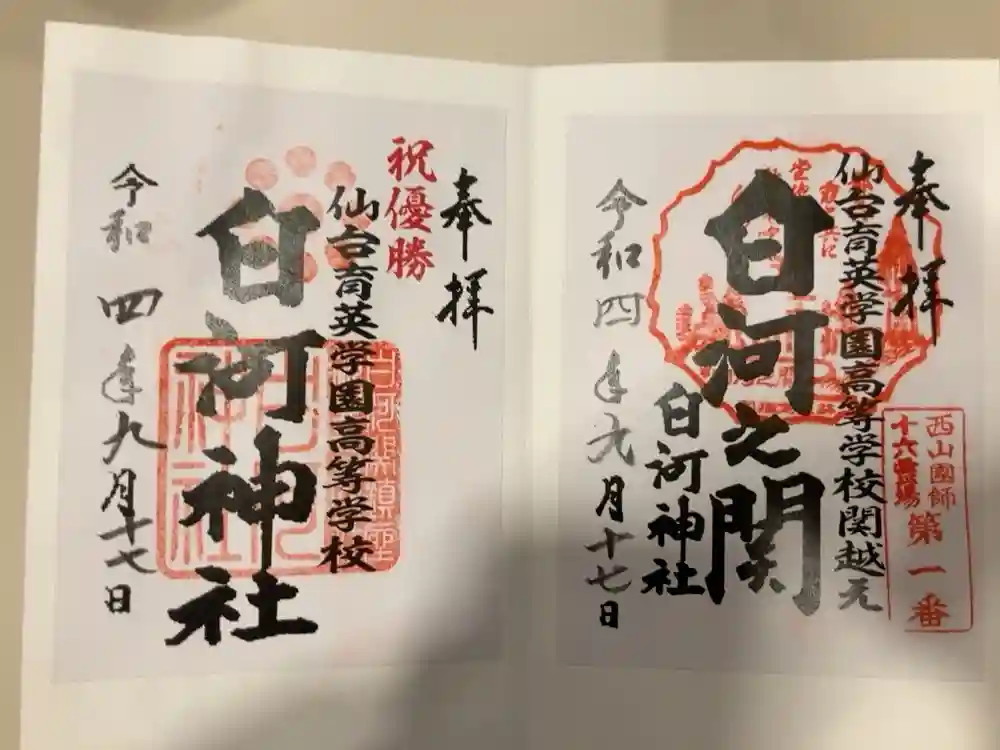 奉拝
仙台育英学園高等学校関越え
白河之関
白河神社
令和四年九月十七日
西山國師
十六霊場
第一番
奉拝
祝優勝
仙台育英学園高等学校
白河神社
令和四年九月十七日